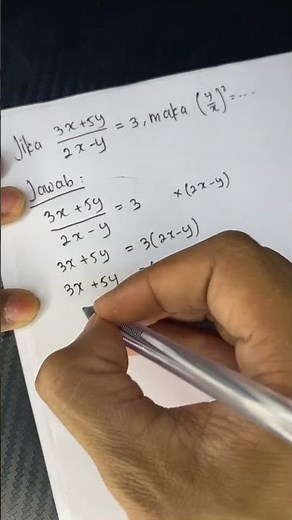 Jika (3x+5y)/(2x-y) = 3, maka (y/x)² = ....
Jawab:
(3x+5y)/(2x-y) = 3 × (2x-y)
3x+5y = 3(2x-y)
3x+5y =